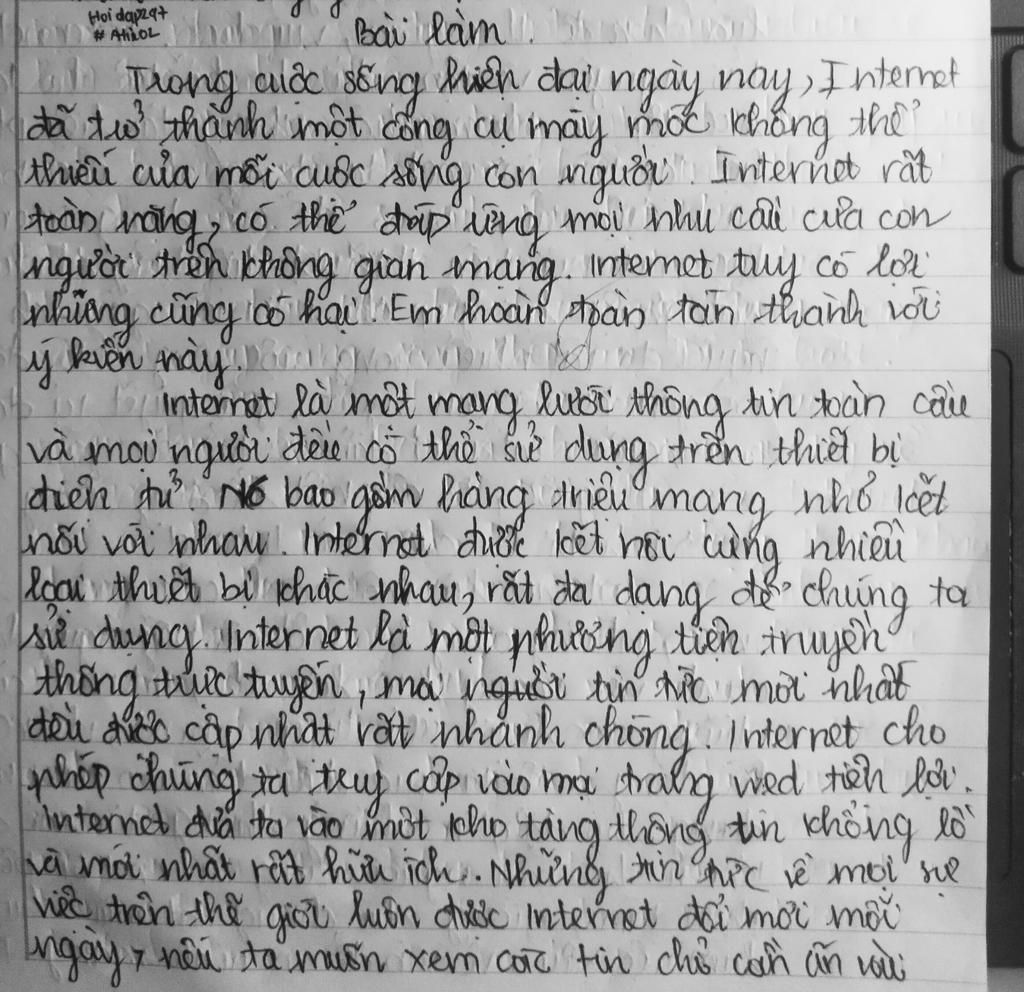 Hoidap247
# Ahi02
Bài làm.
Trong cuộc sống hiện đại ngày nay, Internet
đã trở thành một công cụ máy móc không thể
thiếu của mỗi cuộc sống con người. Internet rất
toàn năng, có thể đáp ứng mọi nhu cầu của con
người trên không gian mạng. Internet tuy có lợi
nhưng cũng có hại. Em hoàn toàn tán thành với
ý kiến này.
Internet là một mạng lưới thông tin toàn cầu
và mọi người đều có thể sử dụng trên thiết bị
điện tử. Nó bao gồm hàng triệu mạng nhỏ kết
nối với nhau. Internet được kết nối cùng nhiều
loại thiết bị khác nhau, rất đa dạng để chúng ta
sử dụng. Internet là một phương tiện truyền
thông trực tuyến, mọi người tin tức mới nhất
đều được cập nhật rất nhanh chóng. Internet cho
phép chúng ta truy cập vào mọi trang wed tiện lợi.
Internet đưa ta vào một kho tàng thông tin khổng lồ
và mới nhất rất hữu ích.. Những tin tức về mọi sự
việc trên thế giới luôn được Internet đổi mới mỗi
ngày, nếu ta muốn xem các tin chỉ cần ấn vài